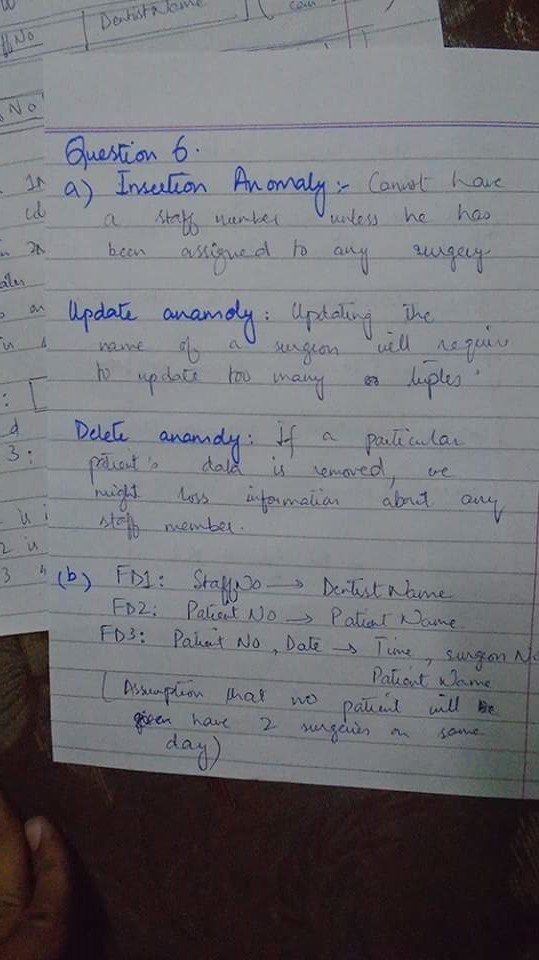 DentistName
No
can
No
Question 6.
a) Insertion Anomaly :- Cannot have
a staff number unless he has
been assigned to any surgery
Update anamoly : Updating the
name of a surgeon will require
to update too many tuples.
Delete anamoly : If a particular
patient's data is removed, we
might loss information about any
staff member.
3 :
(b) FD1: StaffNo → Dentist Name
FD2: Patient No → Patient Name
FD3: Patient No, Date → Time, surgeon No
Patient Name
(Assumption that no patient will be
given have 2 surgeries on same
day)